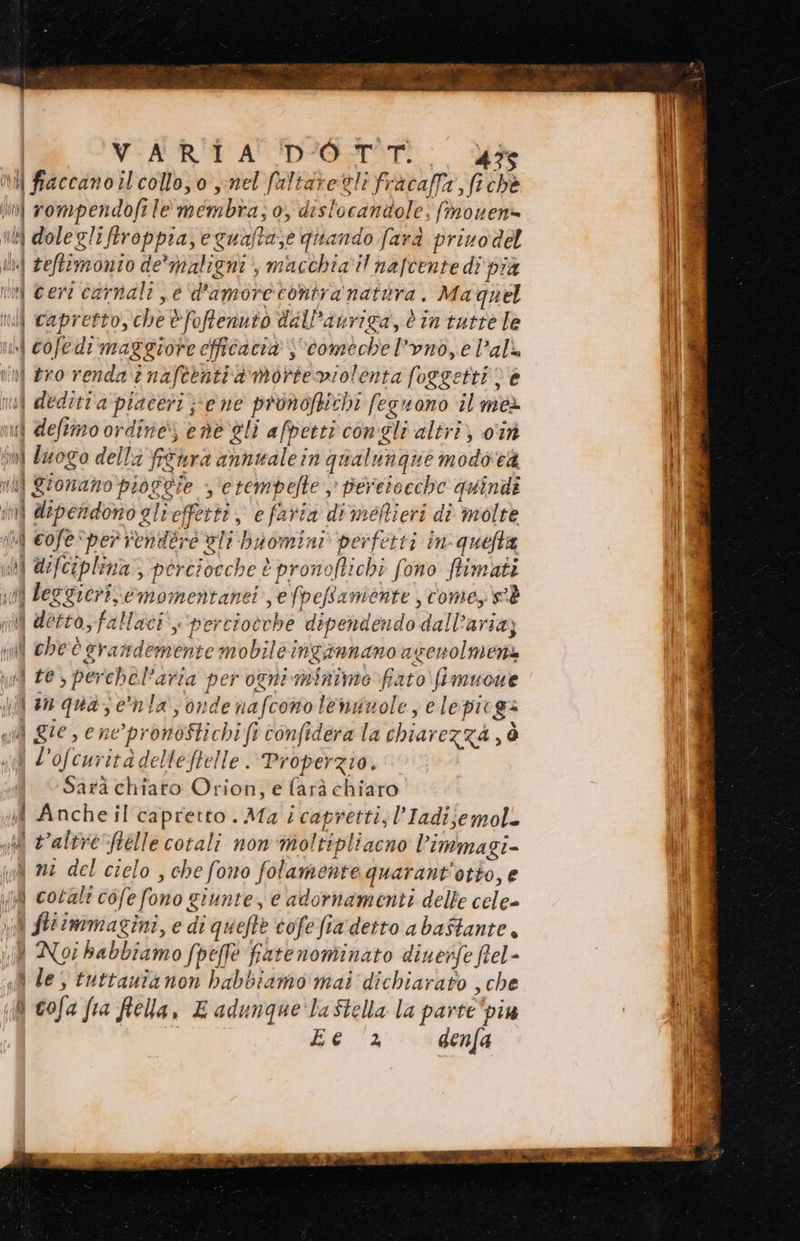 VARIA DOTT. 435
fiaccano il collo, o, nel ſaltare gli fracaſſa, ſi che
rompendoſi le membra, o, dislocandole, ſmouen-
dole gli ſtroppia, e guaſta, e quando ſarà priuo del
teſtimonio de'maligni, macchia il naſcente di pia
ceri carnali, e d'amore contra natura. Ma quel
capretto, che è ſoſtenuto dall'auriga, è in tutte le
coſe di maggiore efficacia; comeche l'vno, e l'al-
tro renda i naſcenti a morte violenta ſoggetti, e
dediti a piaceri; e ne pronoſtichi ſeguono il me-
deſimo ordine; e ne gli aſpetti con gli altri, o in
luogo della figura annuale in qualunque modo ca
gionano pioggie, e tempeſte, perciocche quindi
dipendono gli effetti, e faria di meſtieri di molte
coſe per rendere gli huomini perfetti in queſta
diſciplina, perciocche è pronoſtichi ſono ſtimati
leggieri, e momentanei, e ſpeſſamente, come, s'è
detto, fallaci, perciocche dipendendo dall'aria,
che è grandemente mobile ingannano ageuolmen-
te, perche l'aria per ogni minimo fiato ſi muoue
in quà, e'n la, onde naſcono le nuuole, e le piog-
gie, e ne' pronoſtichi ſi conſidera la chiarezza, ò
l'oſcurità delle ſtelle. Properzio.
Sarà chiaro Orion, e ſarà chiaro
Anche il capretto. Ma i capretti, l'Iadi, e mol-
t'altre ſtelle cotali non moltipliacno l'immagi-
ni del cielo, che ſono ſolamente quarant'otto, e
cotali coſe ſono giunte, e adornamenti delle cele-
ſti immagini, e di queſte coſe ſia detto a baſtante.
Noi habbiamo ſpeſſe fiate nominato diuerſe ſtel-
le, tuttauia non habbiamo mai dichiarato, che
coſa ſia ſtella, E adunque la ſtella la parte piu
Ee 2 denſa